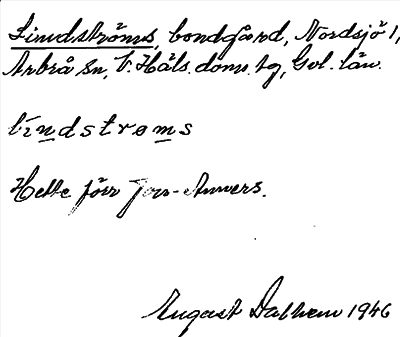 Lindströms, bondgård, Nordsjö 1,
Arbrå sn, V. Häls. doms. tg, Gvl. län.
lindstroms
Hette förr Jon-Anners.
August Dalhem 1946